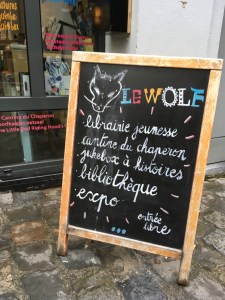 Le WOLF
librairie jeunesse
cantine du chaperon
jukebox à histoires
bibliothèque
expo
entrée
libre
Cantine du Chaperon